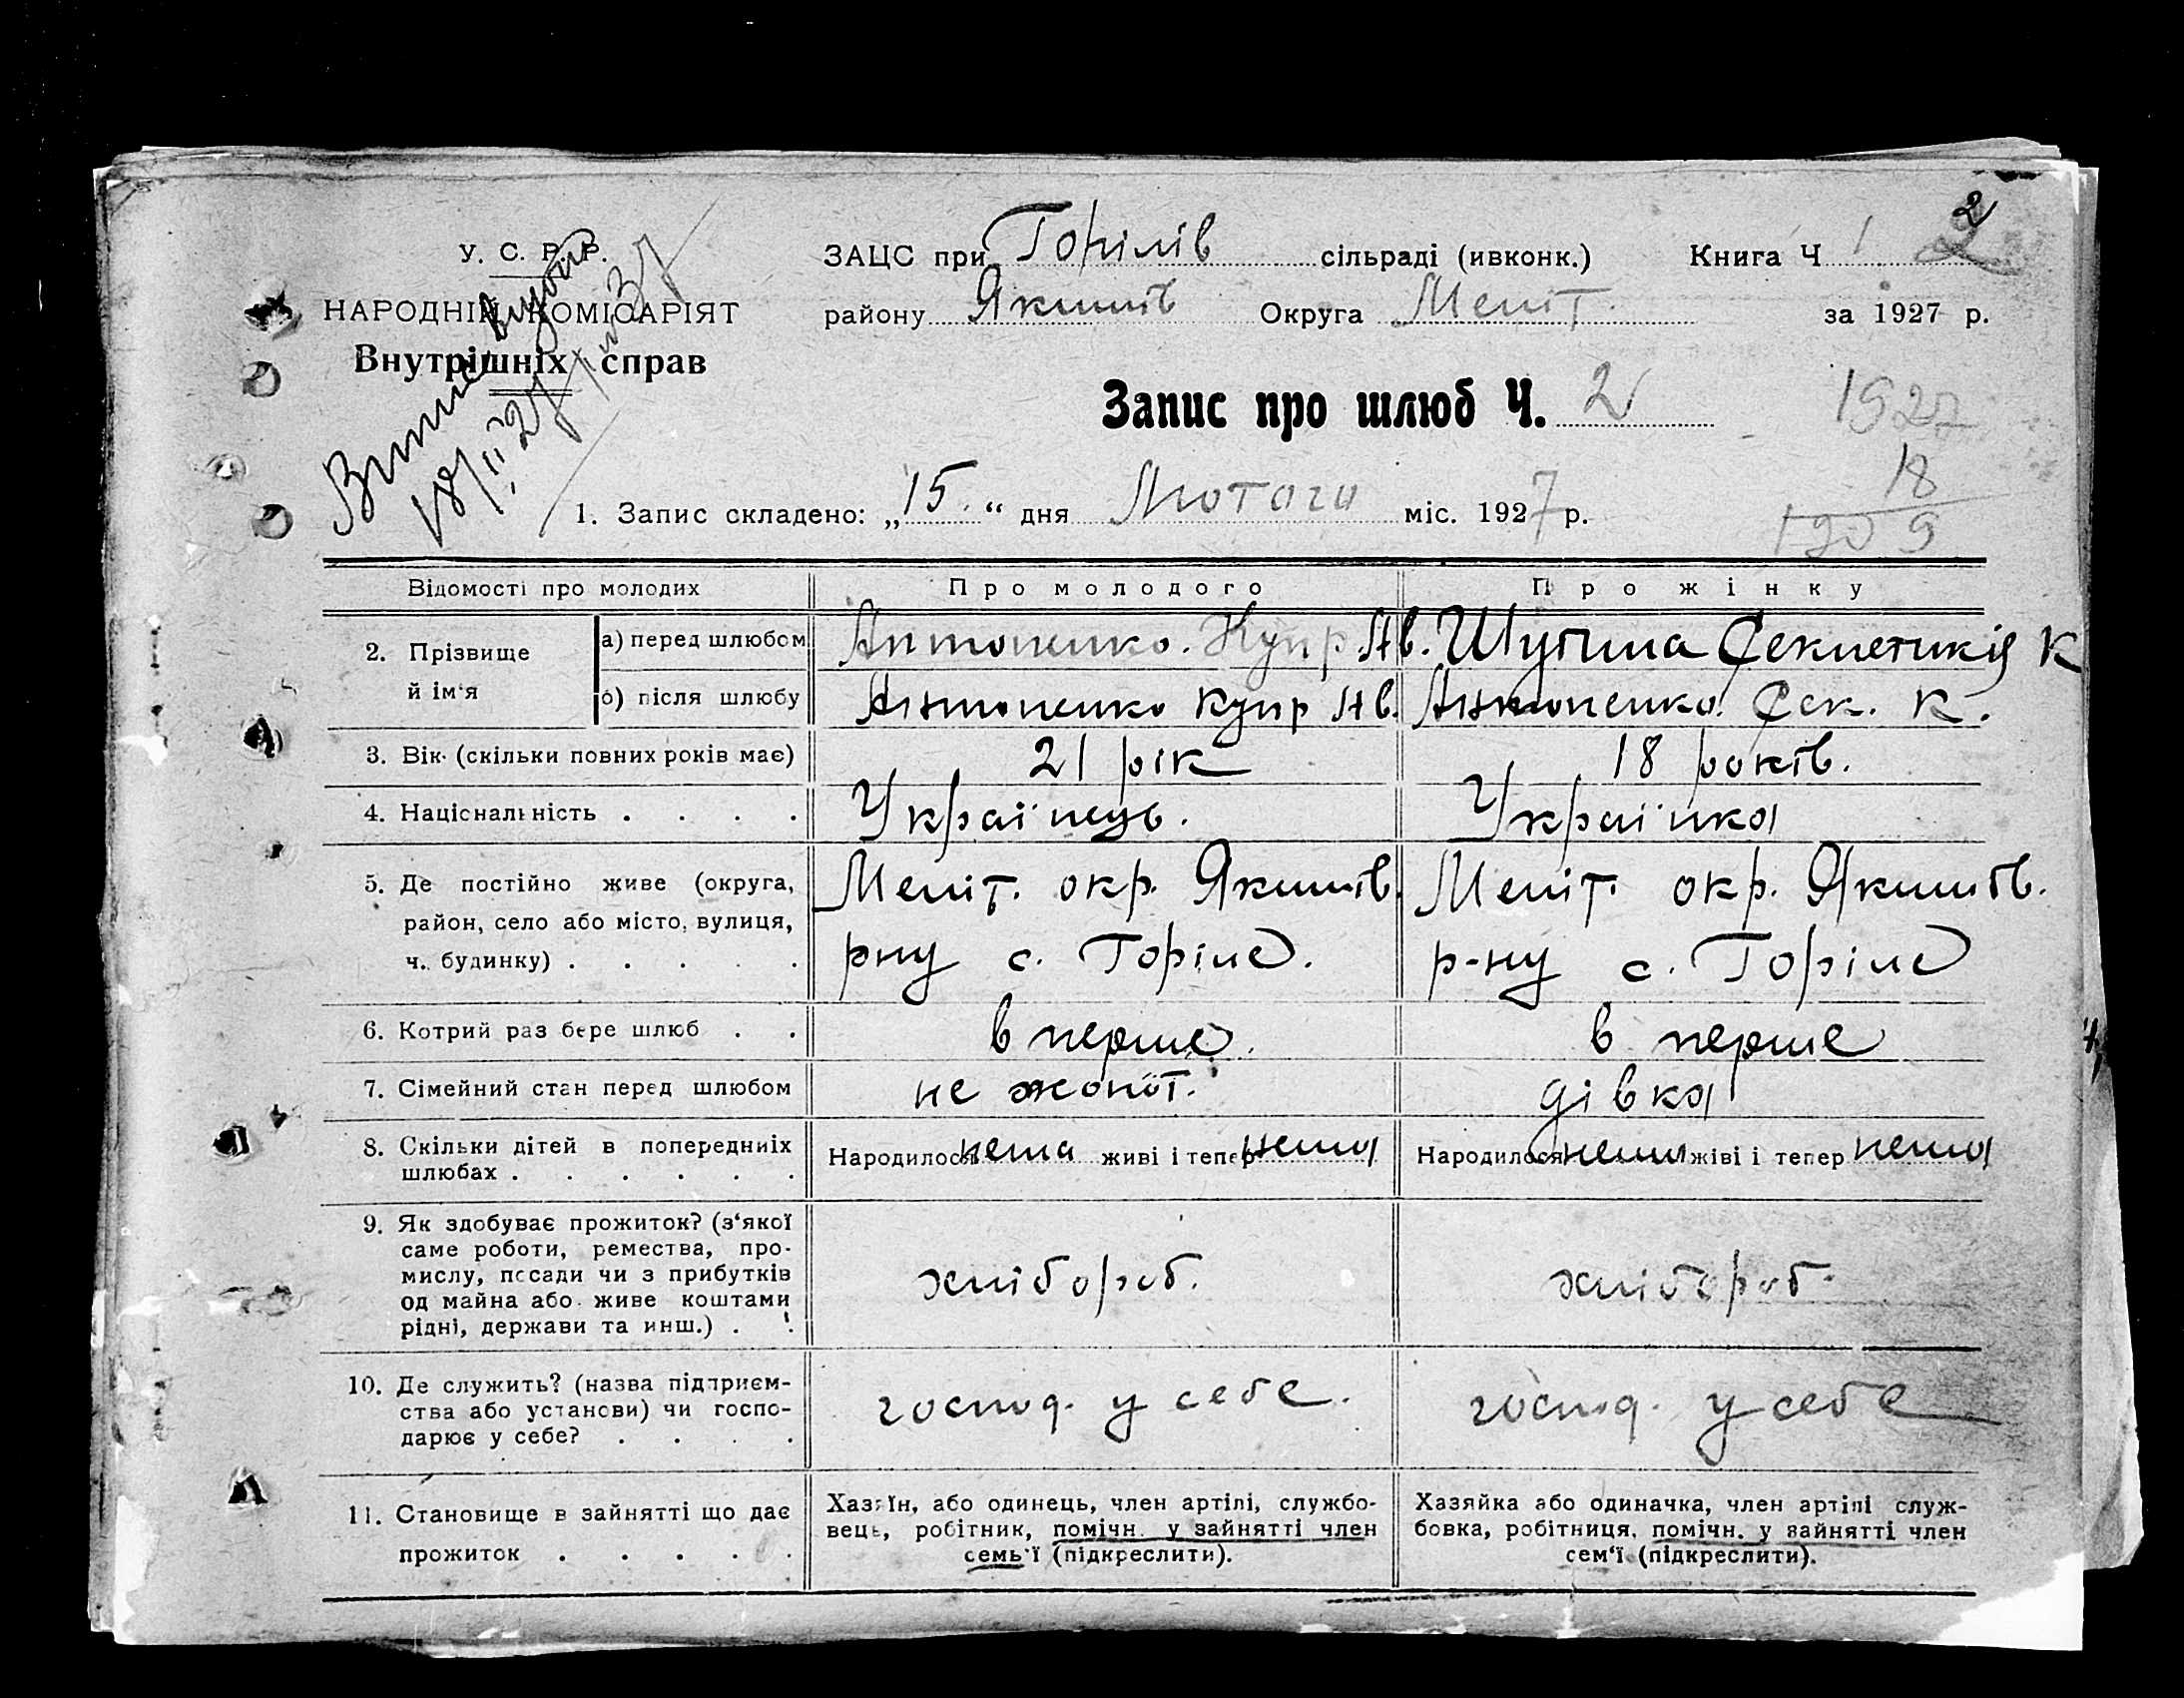 У. С. Р. Р.
НАРОДНІЙ КОМІСАРІЯТ
Внутрішніх справ
ЗАЦС при Горілів сільраді (ивконк.) Книга Ч 1 2
району Якимів Округа Меліт. за 1927 р.
Запис про шлюб Ч. 2
1927
18
1909
1. Запис складено: „15.“ дня Лютого міс. 1927 р.
Відомості про молодих Про молодого Про жінку
2. Прізвище й ім'я
а) перед шлюбом Антоненко. Купр Ів. К
б) після шлюбу Антоненко Купр Ів. Антоненко К.
3. Вік (скільки повних років має) 21 рік 18 років.
4. Національність . . . . Українець. Українка
5. Де постійно живе (округа, Меліт. окр. Якимів. Меліт. окр. Якимів.
район, село або місто, вулиця,
ч. будинку) . . . . . рну с. Горіле. р-ну с. Горіле
6. Котрий раз бере шлюб . . в перше. в перше
7. Сімейний стан перед шлюбом не жонат. дівка
8. Скільки дітей в попередниіх Народилося нема живі і тепер нема Народилося нема жіві і тепер нема
шлюбах . . . . . .
9. Як здобуває прожиток? (з'якої
саме роботи, ремества, про-
мислу, посади чи з прибутків хлібороб. хлібороб.
од майна або живе коштами
рідні, держави та инш.) . .
10. Де служить? (назва підприєм-
ства або установи) чи госпо- господ. у себе. господ. у себе
дарює у себе? . . . .
11. Становище в зайнятті що дає
прожиток . . . . .
Хазяїн, або одинець, член артілі, службо-
вець, робітник, помічн. у зайнятті член
семь'ї (підкреслити).
Хазяйка або одиначка, член артілі служ-
бовка, робітниця, помічн. у зайнятті член
сем'ї (підкреслити).